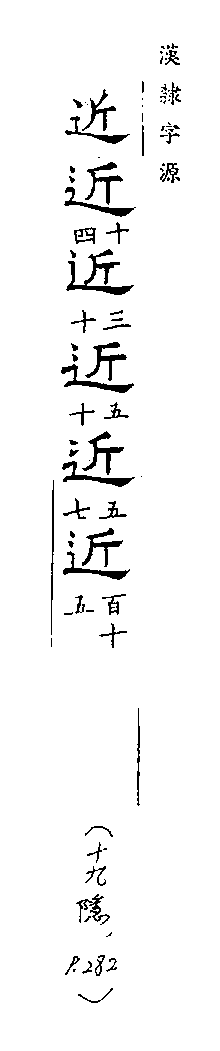 漢隸字源
近近十四近三十近五十近五七近百十五
(十九隱, P.282)